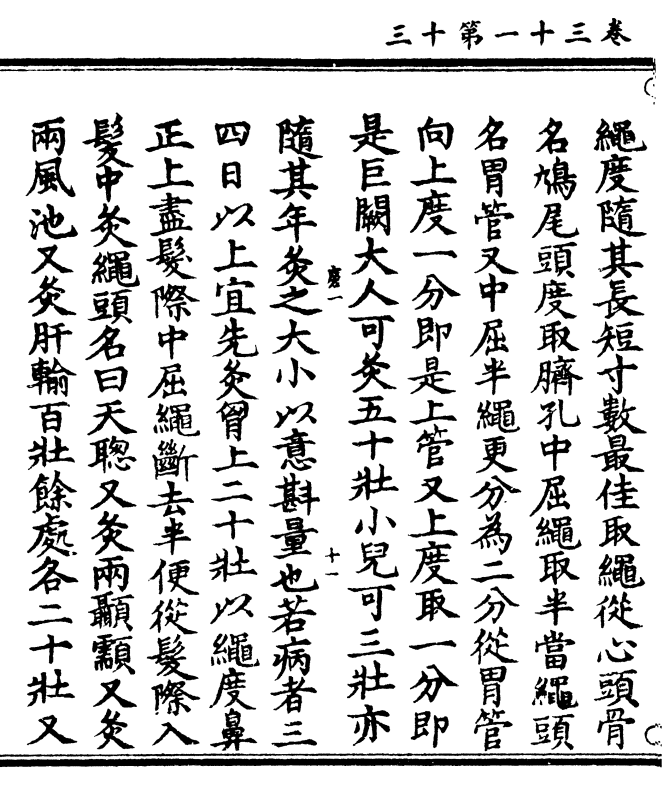 卷三十一第十三
繩度隨其長短寸數最佳取繩從心頭骨
名鳩尾頭度取臍孔中屈繩取半當繩頭
名胃管又中屈半繩更分為二分從胃管
向上度一分即是上管又上度取一分即
是巨闕大人可灸五十壯小兒可三壯亦
十一
隨其年灸之大小以意斟量也若病者三
四日以上宜先灸胷上二十壯以繩度鼻
正上盡髮際中屈繩斷去半便從髮際入
髮中灸繩頭名曰天聰又灸兩顳顬又灸
兩風池又灸肝輸百壯餘處各二十壯又